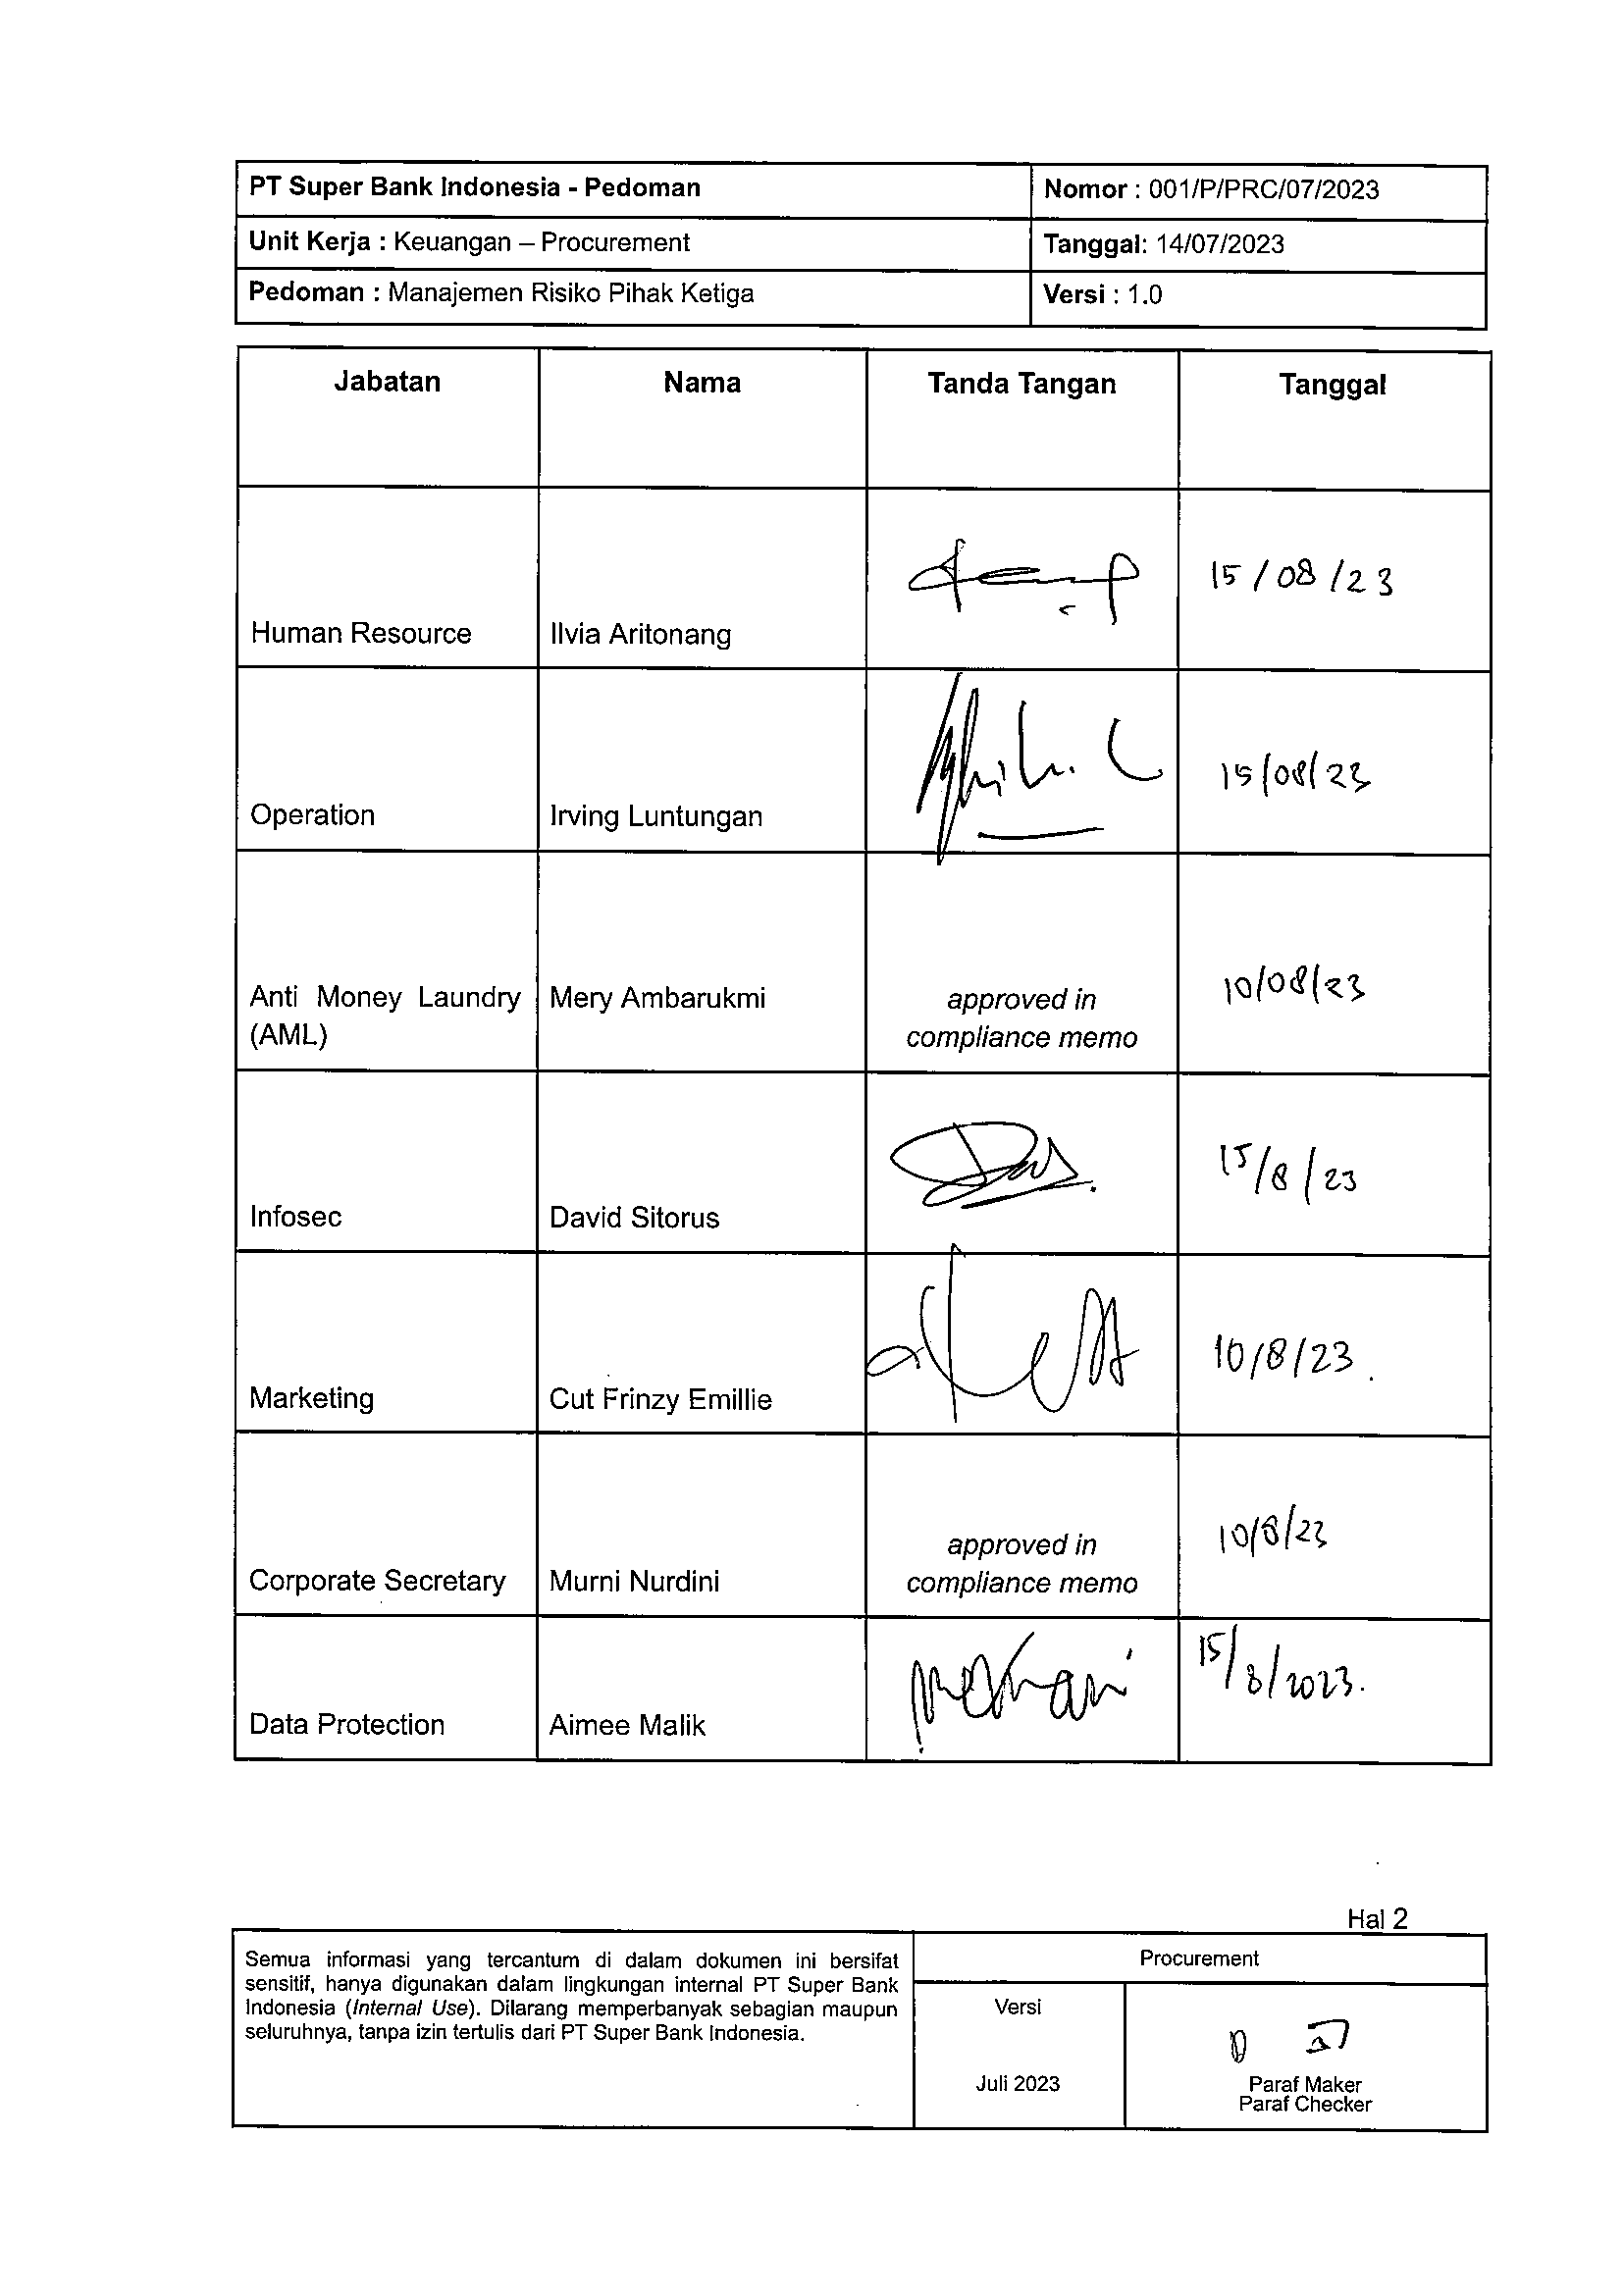 PT Super Bank Indonesia - Pedoman
Nomor : 001/P/PRC/07/2023
Unit Kerja : Keuangan – Procurement
Tanggal: 14/07/2023
Pedoman : Manajemen Risiko Pihak Ketiga
Versi : 1.0
Jabatan Nama Tanda Tangan Tanggal
Human Resource Ilvia Aritonang 15/08/23
Operation Irving Luntungan 15/08/23
Anti Money Laundry (AML) Mery Ambarukmi approved in compliance memo 10/08/23
Infosec David Sitorus 15/8/23
Marketing Cut Frinzy Emillie 10/8/23.
Corporate Secretary Murni Nurdini approved in compliance memo 10/8/23
Data Protection Aimee Malik 15/8/2023.
Hal 2
Semua informasi yang tercantum di dalam dokumen ini bersifat
sensitif, hanya digunakan dalam lingkungan internal PT Super Bank
Indonesia (Internal Use). Dilarang memperbanyak sebagian maupun
seluruhnya, tanpa izin tertulis dari PT Super Bank Indonesia.
Procurement
Versi
Juli 2023
Paraf Maker
Paraf Checker